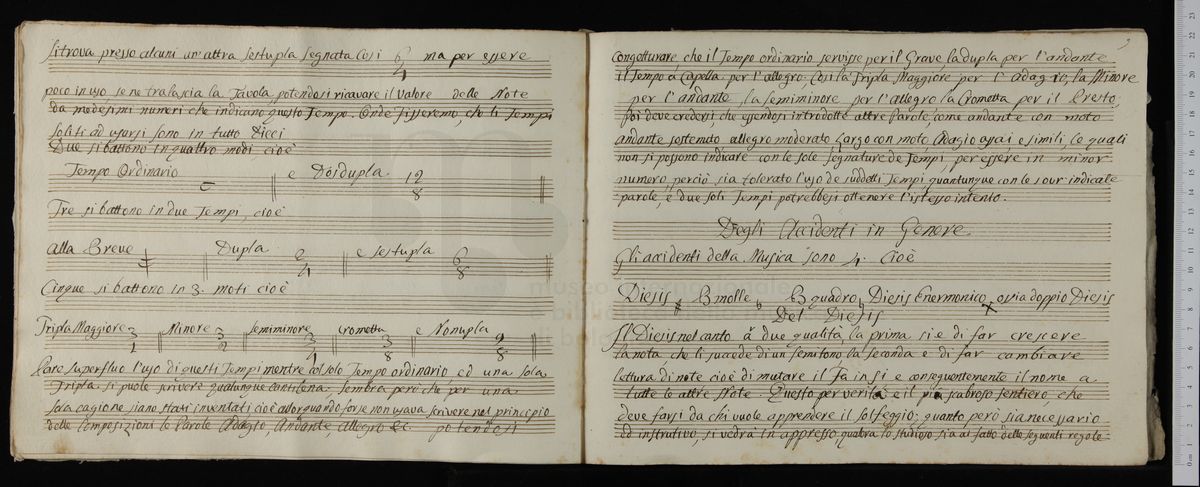 Si trova presso alcuni un'altra sestupla segnata Così 6/4 ma per essere
poco in uso se ne tralascia la Tavola, potendosi ricavare il valore delle Note
da medesimi numeri che indicano questo Tempo. Onde diremo, che li Tempi
soliti ad usarsi sono in tutto Dieci
Due si battono in quattro modi cioè
Tempo Ordinario C e Dosdupla 12/8
Tre si battono in due Tempi, cioè
alla Breve Dupla 2/4 e sestupla 6/8
Cinque si battono in 3. moti cioè
Tripla Maggiore 3/1 Minore 3/2 semiminore 3/4 Crometta 3/8 e Nonupla 9/8
Pare superfluo l'uso di questi Tempi mentre col solo Tempo ordinario ed una sola
Tripla si puole scrivere qualunque cantilena. Sembra però che per una
sola cagione siano stati inventati cioè allor quando forse non usava scrivere nel principio
delle Composizioni le Parole Adagio, Andante, Allegro &c. potendosi
9
Congetturare che il Tempo ordinario servisse per il Grave la dupla per l'andante
il Tempo a Capella per l'allegro; Così la Tripla Maggiore per l'Adagio, la Minore
per l'andante, la semiminore per l'allegro la Crometta per il Presto,
Poi deve credersi che essendosi introdotte altre Parole, come andante con moto
andante sostenuto allegro moderato Largo con moto, Adagio assai e simili, le quali
non si possono indicare con le sole segnature de Tempi, per essere in minor
numero, perciò sia tolerato l'uso de suddetti Tempi, quantunque con le indicate
parole, e due soli Tempi potrebbesi ottenere l'istesso intento.
Degli Accidenti in Genere
Gli accidenti della Musica sono 4. Cioè
Diesis ♯ B molle ♭ B quadro ♮ Diesis Enermonico × ossia doppio Diesis
Del Diesis
Il Diesis nel canto à due qualità, la prima si è di far crescere
la nota che li succede di un semitono, la seconda è di far cambiare
lettura di note cioè di mutare il Fa in Si e conseguentemente il nome a
tutte le altre Note. Questo per verità è il più scabroso sentiero, che
deve farsi da chi vuole apprendere il solfeggio; quanto però sia necessario
ed instrutivo, si vedrà in appresso, qualora lo studioso, sia al fatto delle seguenti regole.
museo internazionale
e biblioteca della
di bolo